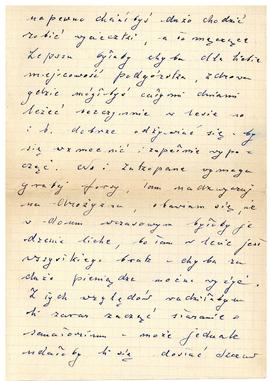 napewno chciałbyś dużo chodzić
robić wycieczki, a to męczące
Lepsza byłaby chyba dla Ciebie
miejscowość podgórska, zdrowa
gdzie mógłbyś całymi dniami
leżeć bezczynnie w lesie no
i b. dobrze odżywiać się - by
się wzmocnić i zupełnie wypo-
cząć. No i Zakopane wymaga
grubej forsy, tam nadzwyczaj
na drożyzna, obawiam się, że
w domu wczasowym byłoby je
dzenie liche, bo tam w lecie jest
wszystkiego brak - chyba za
duże pieniądze można wyżyć.
Z tych względów radziłabym
Ci zaraz zacząć starania o
sanatorium - może jednak
udałoby Ci się dostać